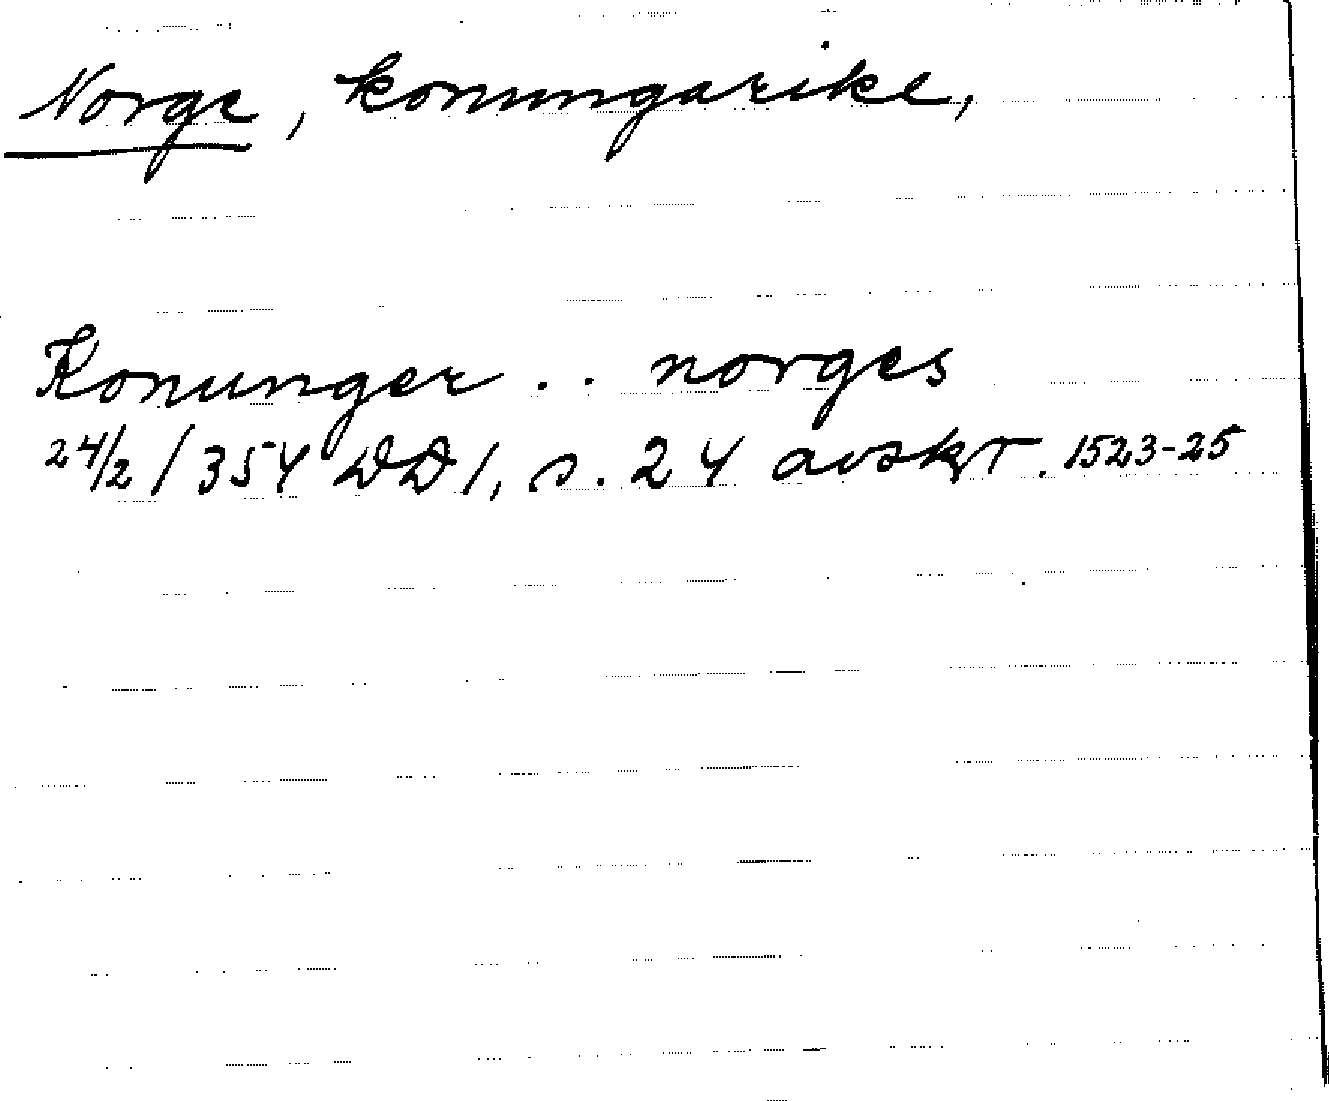 Norge, konungarike,
Konunger .. norges
24/2 1354 DD1, s. 24 avskr. 1523-25